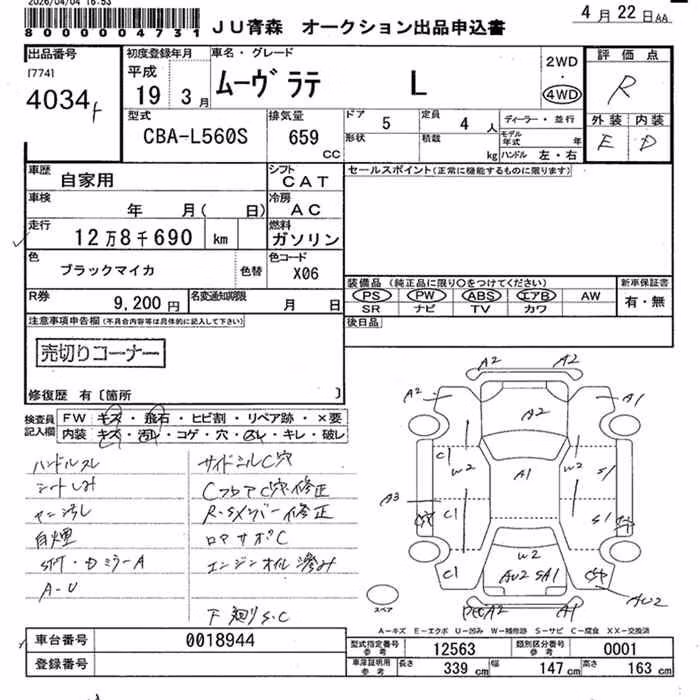 2026/04/04 16:53
8000004731
JU青森 オークション出品申込書
4月22日AA
出品番号
[774]
4034
初度登録年月
平成
19 3月
車名・グレード
ムーヴラテ L
2WD
・
4WD
評価点
R
外装 内装
E D
型式
CBA-L560S
排気量
659
CC
ドア
5
定員
4人
形状
積載
kg
ディーラー・並行
モデル年式 年
ハンドル 左・右
車歴
自家用
シフト
CAT
車検
年 月( 日)
冷房
AC
走行
12万8千690 km
燃料
ガソリン
色
ブラックマイカ
色替
色コード
X06
R券
9,200円
名変通知期限
月 日
セールスポイント(正常に機能するものに限ります)
装備品 (純正品に限り○をつけてください)
PS PW ABS エアB AW
SR ナビ TV カワ
新車保証書
有・無
後日品
注意事項申告欄(不具合内容等は具体的に記入して下さい)
売切りコーナー
修復歴 有〔箇所 〕
検査員記入欄
FW キズ・飛石・ヒビ割・リペア跡・×要
内装 キズ・汚レ・コゲ・穴・凹レ・キレ・破レ
ハンドルスレ
シートしみ
自煙
A-U
サイドシルC穴
CフロアC穴・修正
R-Sメンバー修正
ロアサポC
エンジンオイル滲み
下廻りS.C
A2 A2
A2 A2 A1
C1 W2 A1 W2 S1
A3 C1 S1
W2
C1 AU2 SA1
AU2
A2 A1
スペア
A-キズ E-エクボ U-凹み W-補修跡 S-サビ C-腐食 XX-交換済
車台番号
0018944
登録番号
型式指定番号
参考
12563
類別区分番号
参考
0001
車庫証明用
参考
長さ 339cm 幅 147cm 高さ 163cm